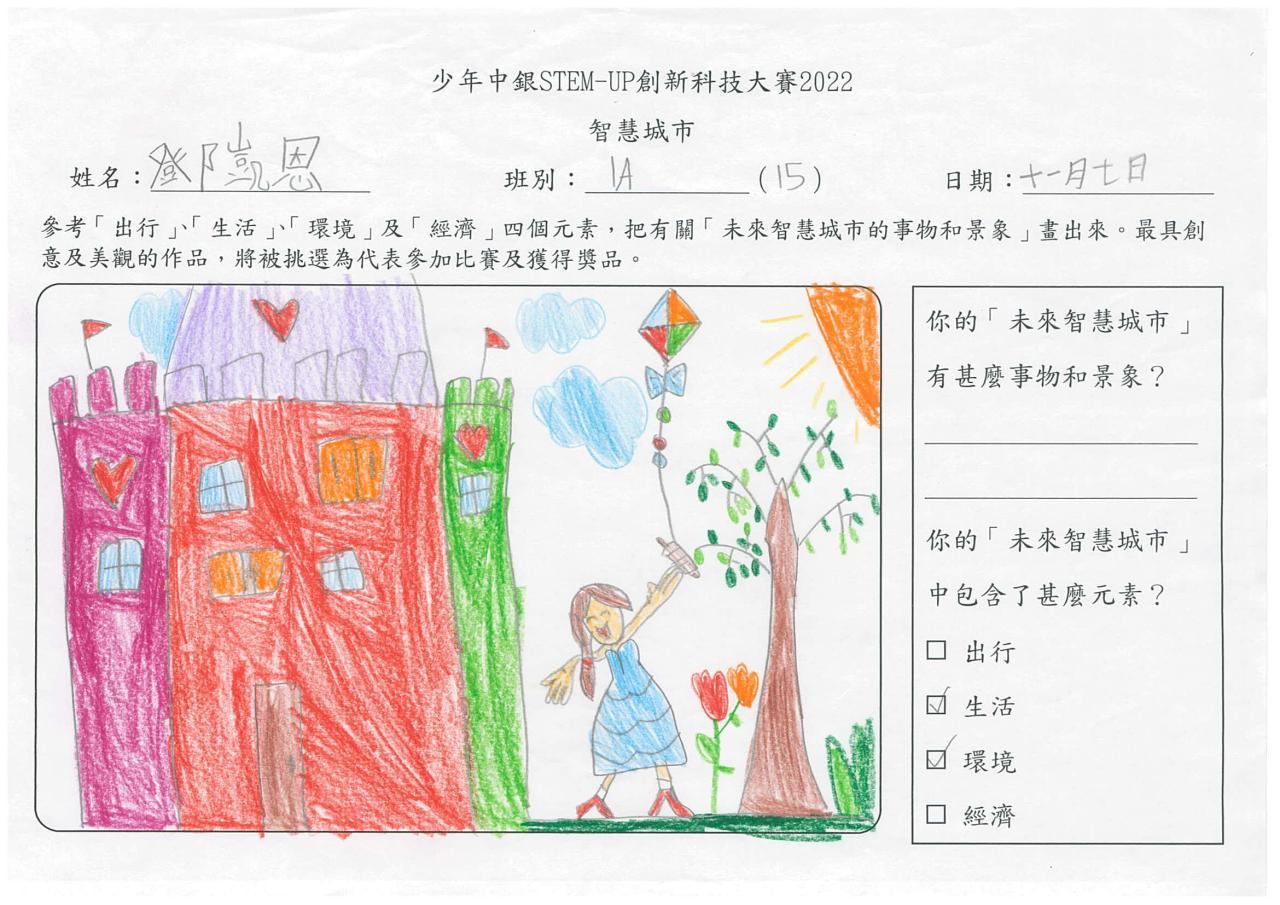 少年中銀STEM-UP創新科技大賽2022
智慧城市
姓名：鄧凱恩 班別：1A (15) 日期：十一月七日
參考「出行」、「生活」、「環境」及「經濟」四個元素，把有關「未來智慧城市的事物和景象」畫出來。最具創
意及美觀的作品，將被挑選為代表參加比賽及獲得獎品。
你的「未來智慧城市」
有甚麼事物和景象？
你的「未來智慧城市」
中包含了甚麼元素？
☐ 出行
☑ 生活
☑ 環境
☐ 經濟